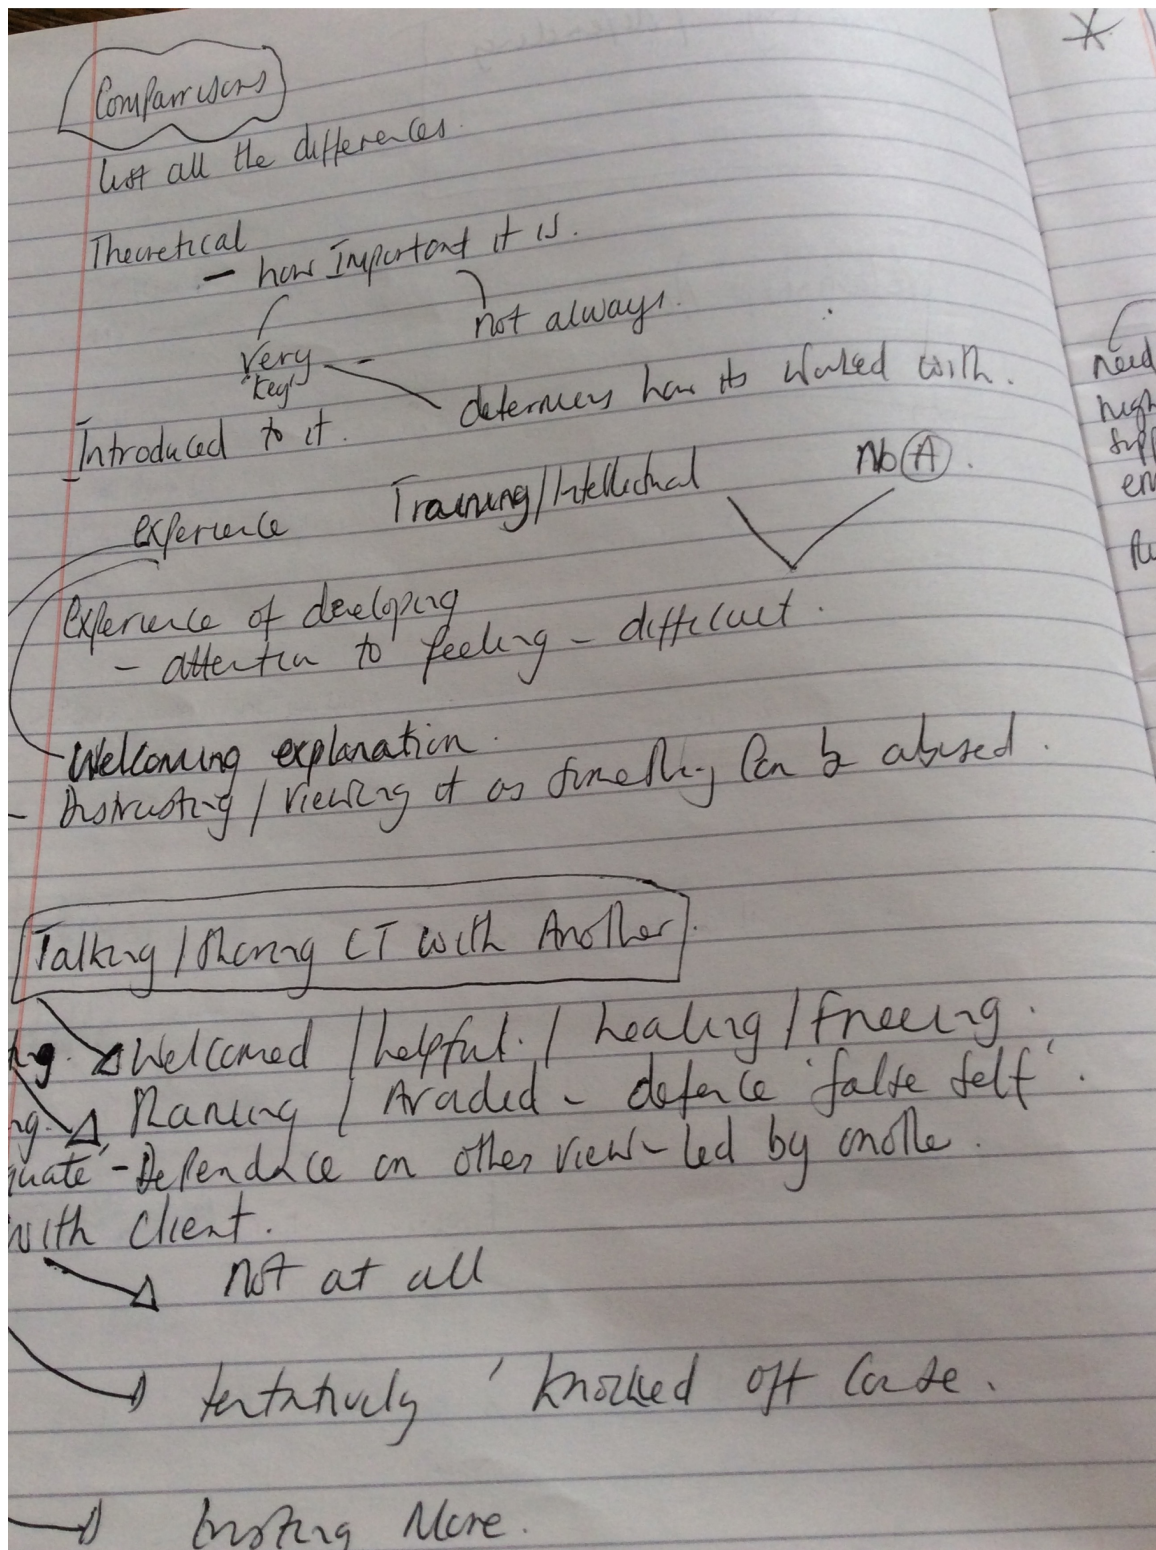 Comparrisons
list all the differences.
Theoretical
- how Important it is.
not always.
very -
'key'
determines how its worked with.
Introduced to it.
No (A).
Training/Intellectual
experience
Experience of developing
- attention to feeling - difficult.
Welcoming explanation.
- Distrusting / viewing it as something can be abused.
Talking / Sharing CT with Another.
Welcomed / helpful. / healing / freeing.
/ Avoided - defence 'false self'.
- Dependance on others view - led by another.
with client.
not at all
tentatively ' knocked off
trusting More.
need